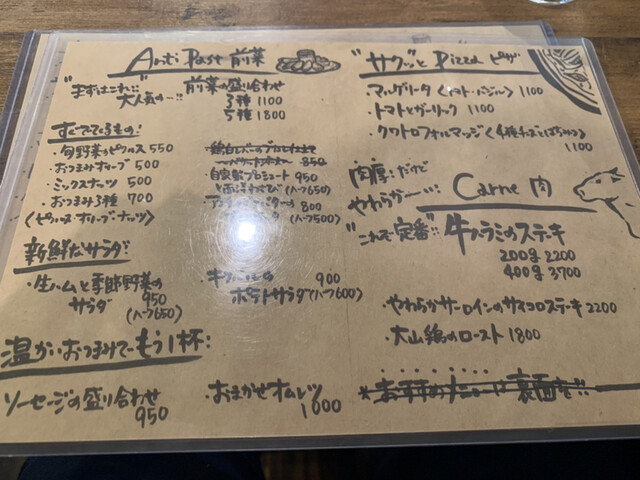 Anti Past 前菜
"まずはこれ!!
大人気の…!!
前菜の盛り合わせ
3種 1100
5種 1800
すぐでてくるもの!
・旬野菜のピクルス 550
・おつまみオリーブ 500
・ミックスナッツ 500
・おつまみ3種 700
〈ピクルス・オリーブ・ナッツ〉
850
・自家製プロシュート 950
(ハーフ650)
800
(ハーフ500)
新鮮なサラダ
・生ハムと季節野菜の
サラダ 950
(ハーフ650)
900
ポテトサラダ(ハーフ600)
温かいおつまみでもう1杯:
ソーセージの盛り合わせ
950
・おまかせオムレツ
1000
"サクッとPizza ピザ
・マルゲリータ〈トマト・バジル〉1100
・トマトとガーリック! 1100
・クワトロフォルマッジ〈4種チーズとはちみつ〉
1100
肉厚:だけど
やわらか〜…:
Carne 肉
"これぞ定番"!!
牛ハラミのステーキ
200g 2200
400g 3700
・やわらかサーロインのサイコロステーキ 2200
・大山鶏のロースト 1800
裏面を!!